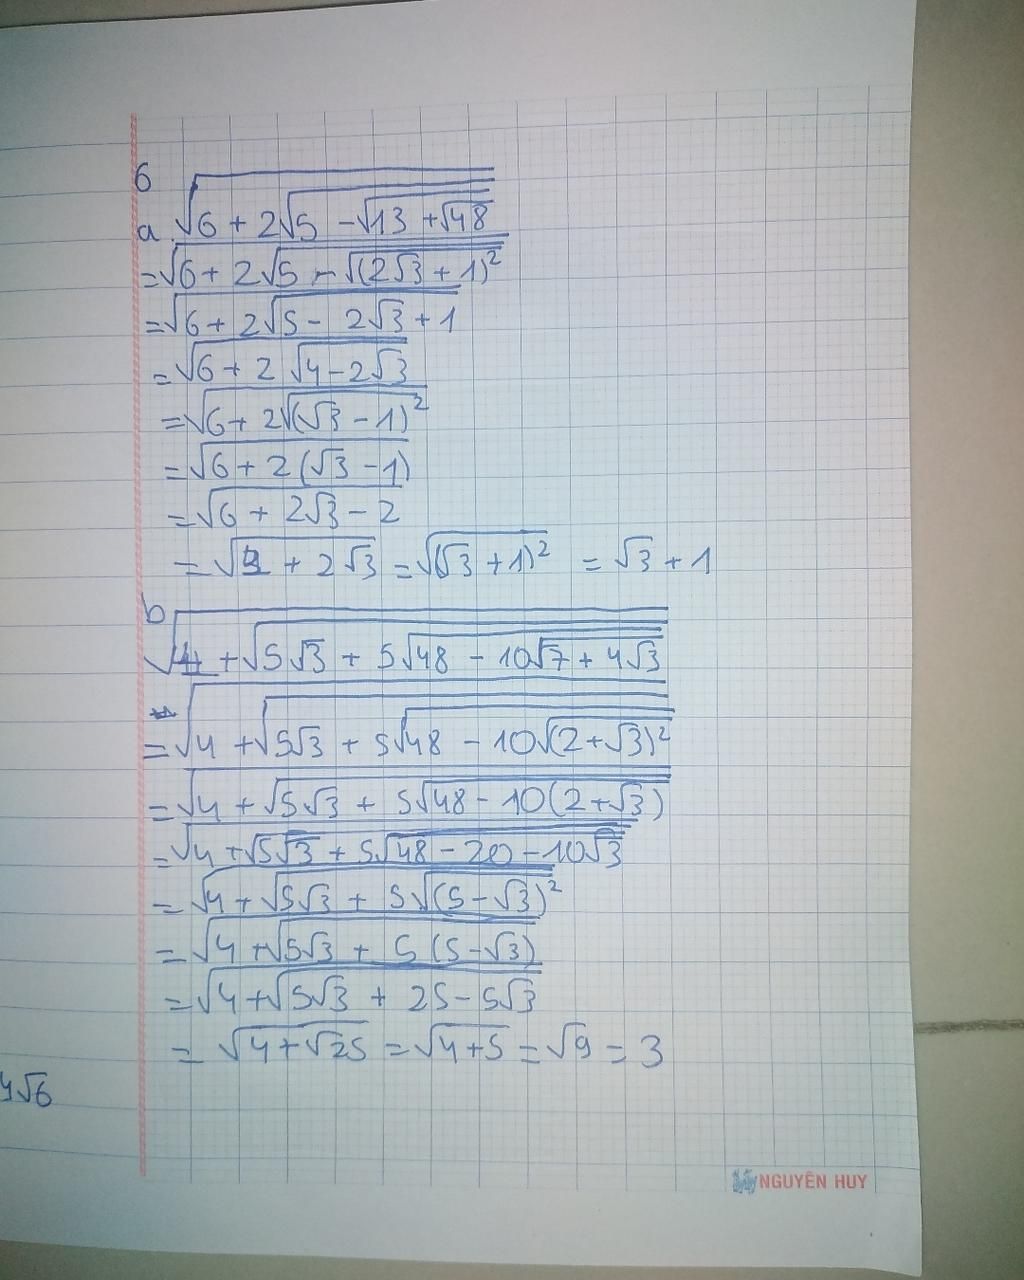 6
a √6 + 2√5 - √13 + √48
= √6 + 2√5 - √(2√3 + 1)²
= √6 + 2√5 - 2√3 + 1
= √6 + 2 √4 - 2√3
= √6 + 2√(√3 - 1)²
= √6 + 2 (√3 - 1)
= √6 + 2√3 - 2
= √4 + 2√3 = √(√3 + 1)² = √3 + 1
b
√4 + √5√3 + 5√48 - 10√7 + 4√3
= √4 + √5√3 + 5√48 - 10√(2 + √3)²
= √4 + √5√3 + 5√48 - 10(2 + √3)
= √4 + √5√3 + 5√48 - 20 - 10√3
= √4 + √5√3 + 5√(5 - √3)²
= √4 + √5√3 + 5 (5 - √3)
= √4 + √5√3 + 25 - 5√3
= √4 + √25 = √4 + 5 = √9 = 3
4√6
NGUYÊN HUY